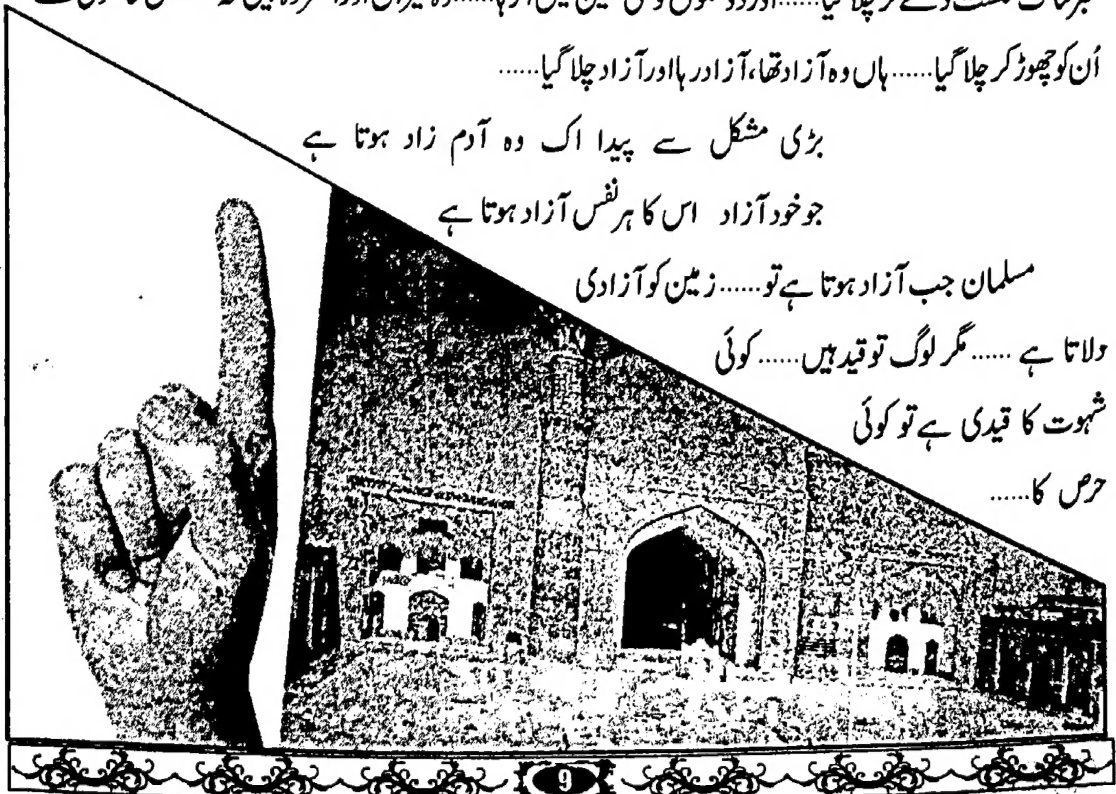 اُن کو چھوڑ کر چلا گیا...... ہاں وہ آزاد تھا، آزاد رہا اور آزاد چلا گیا......
بڑی مشکل سے پیدا اک وہ آدم زاد ہوتا ہے
جو خود آزاد اس کا ہر نفس آزاد ہوتا ہے
مسلمان جب آزاد ہوتا ہے تو...... زمین کو آزادی
دلاتا ہے ...... مگر لوگ تو قید ہیں...... کوئی
شہوت کا قیدی ہے تو کوئی
حرص کا......
9